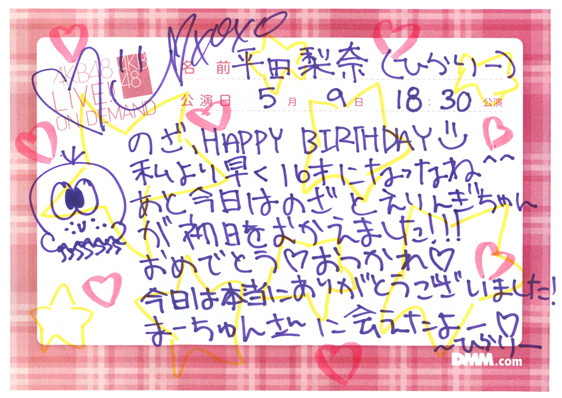 xoxo
AKB48 LIVE!! ON DEMAND
AKB48
名前 平田梨奈(ひかりー)
公演日 5月9日 18:30公演
のざ、HAPPY BIRTHDAY
私より早く16才になったなね^^
あと今日はのざとえりんぎちゃん
が初日をむかえました!!!
おめでとう♡おつかれ♡
今日は本当にありがとうございました!
まーちゅんさんに会えたよー♡
〜ひかりー
DMM.com